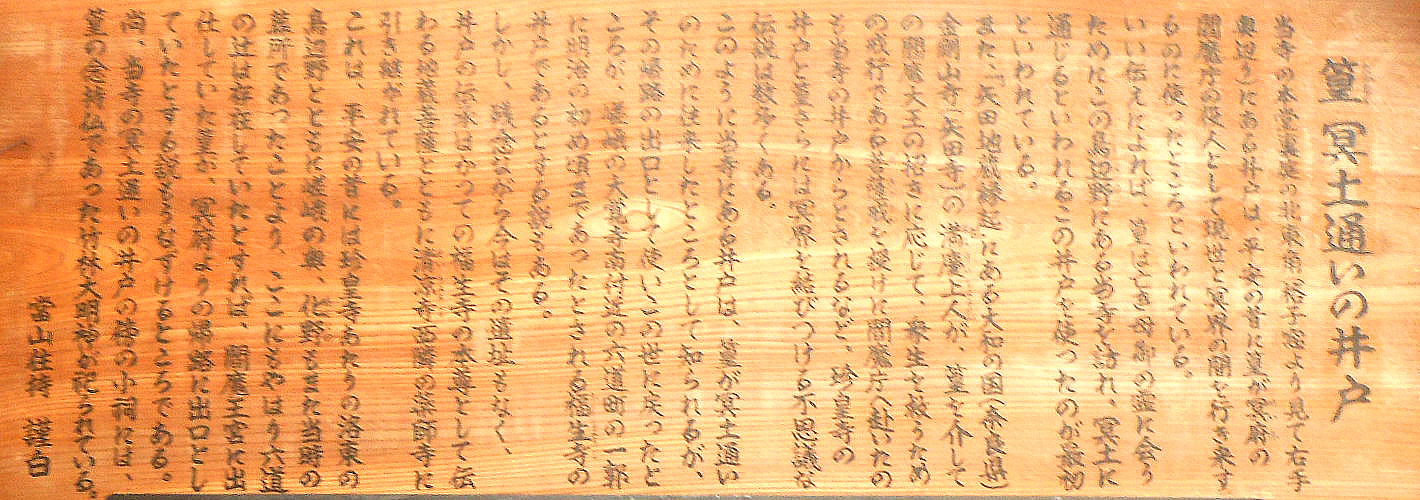 篁 冥土通いの井戸
当寺の本堂裏庭の北東角、格子窓より見て右手
奥辺りにある井戸は、平安の昔に篁が冥府の
閻魔庁の役人として現世と冥界の間を行き来す
るのに使ったところといわれている。
いい伝えによれば、篁は亡き母御の霊に会う
ためにこの鳥辺野にある当寺を訪れ、冥土に
通じるといわれるこの井戸を使ったのが最初
といわれている。
また、「矢田地蔵縁起」にある大和の国(奈良県)
金剛山寺(矢田寺)の満慶上人が、篁を介して
の閻魔大王の招きに応じて、衆生を救うため
の戒行である菩薩戒を授けに閻魔庁へ赴いたの
も当寺の井戸からとされるなど、珍皇寺の
井戸と篁さらには冥界を結びつける不思議な
伝説は数多くある。
このように当寺にある井戸は、篁が冥土通い
のために往来したところとして知られるが、
その帰路の出口として使い、この世に戻ったと
ころが、嵯峨の大覚寺南付近の六道町の一郭
に明治の初め頃まであったとされる福生寺の
井戸であるとする説もある。
しかし、残念ながら今はその遺址もなく、
井戸の伝承はかつての福生寺の本尊として伝
わる地蔵菩薩とともに清凉寺西隣の薬師寺に
引き継がれている。
これは、平安の昔には珍皇寺あたりの洛東の
鳥辺野とともに嵯峨の奥、化野もまた当時の
墓所であったことより、ここにもやはり六道
の辻は存在していたとすれば、閻魔王宮に出
仕していた篁が、冥府よりの帰路に出口とし
ていたとする説もうなずけるところである。
尚、当寺の冥土通いの井戸の傍の小祠には、
篁の念持仏であった竹林大明神が祀られている。
当山住持 謹白